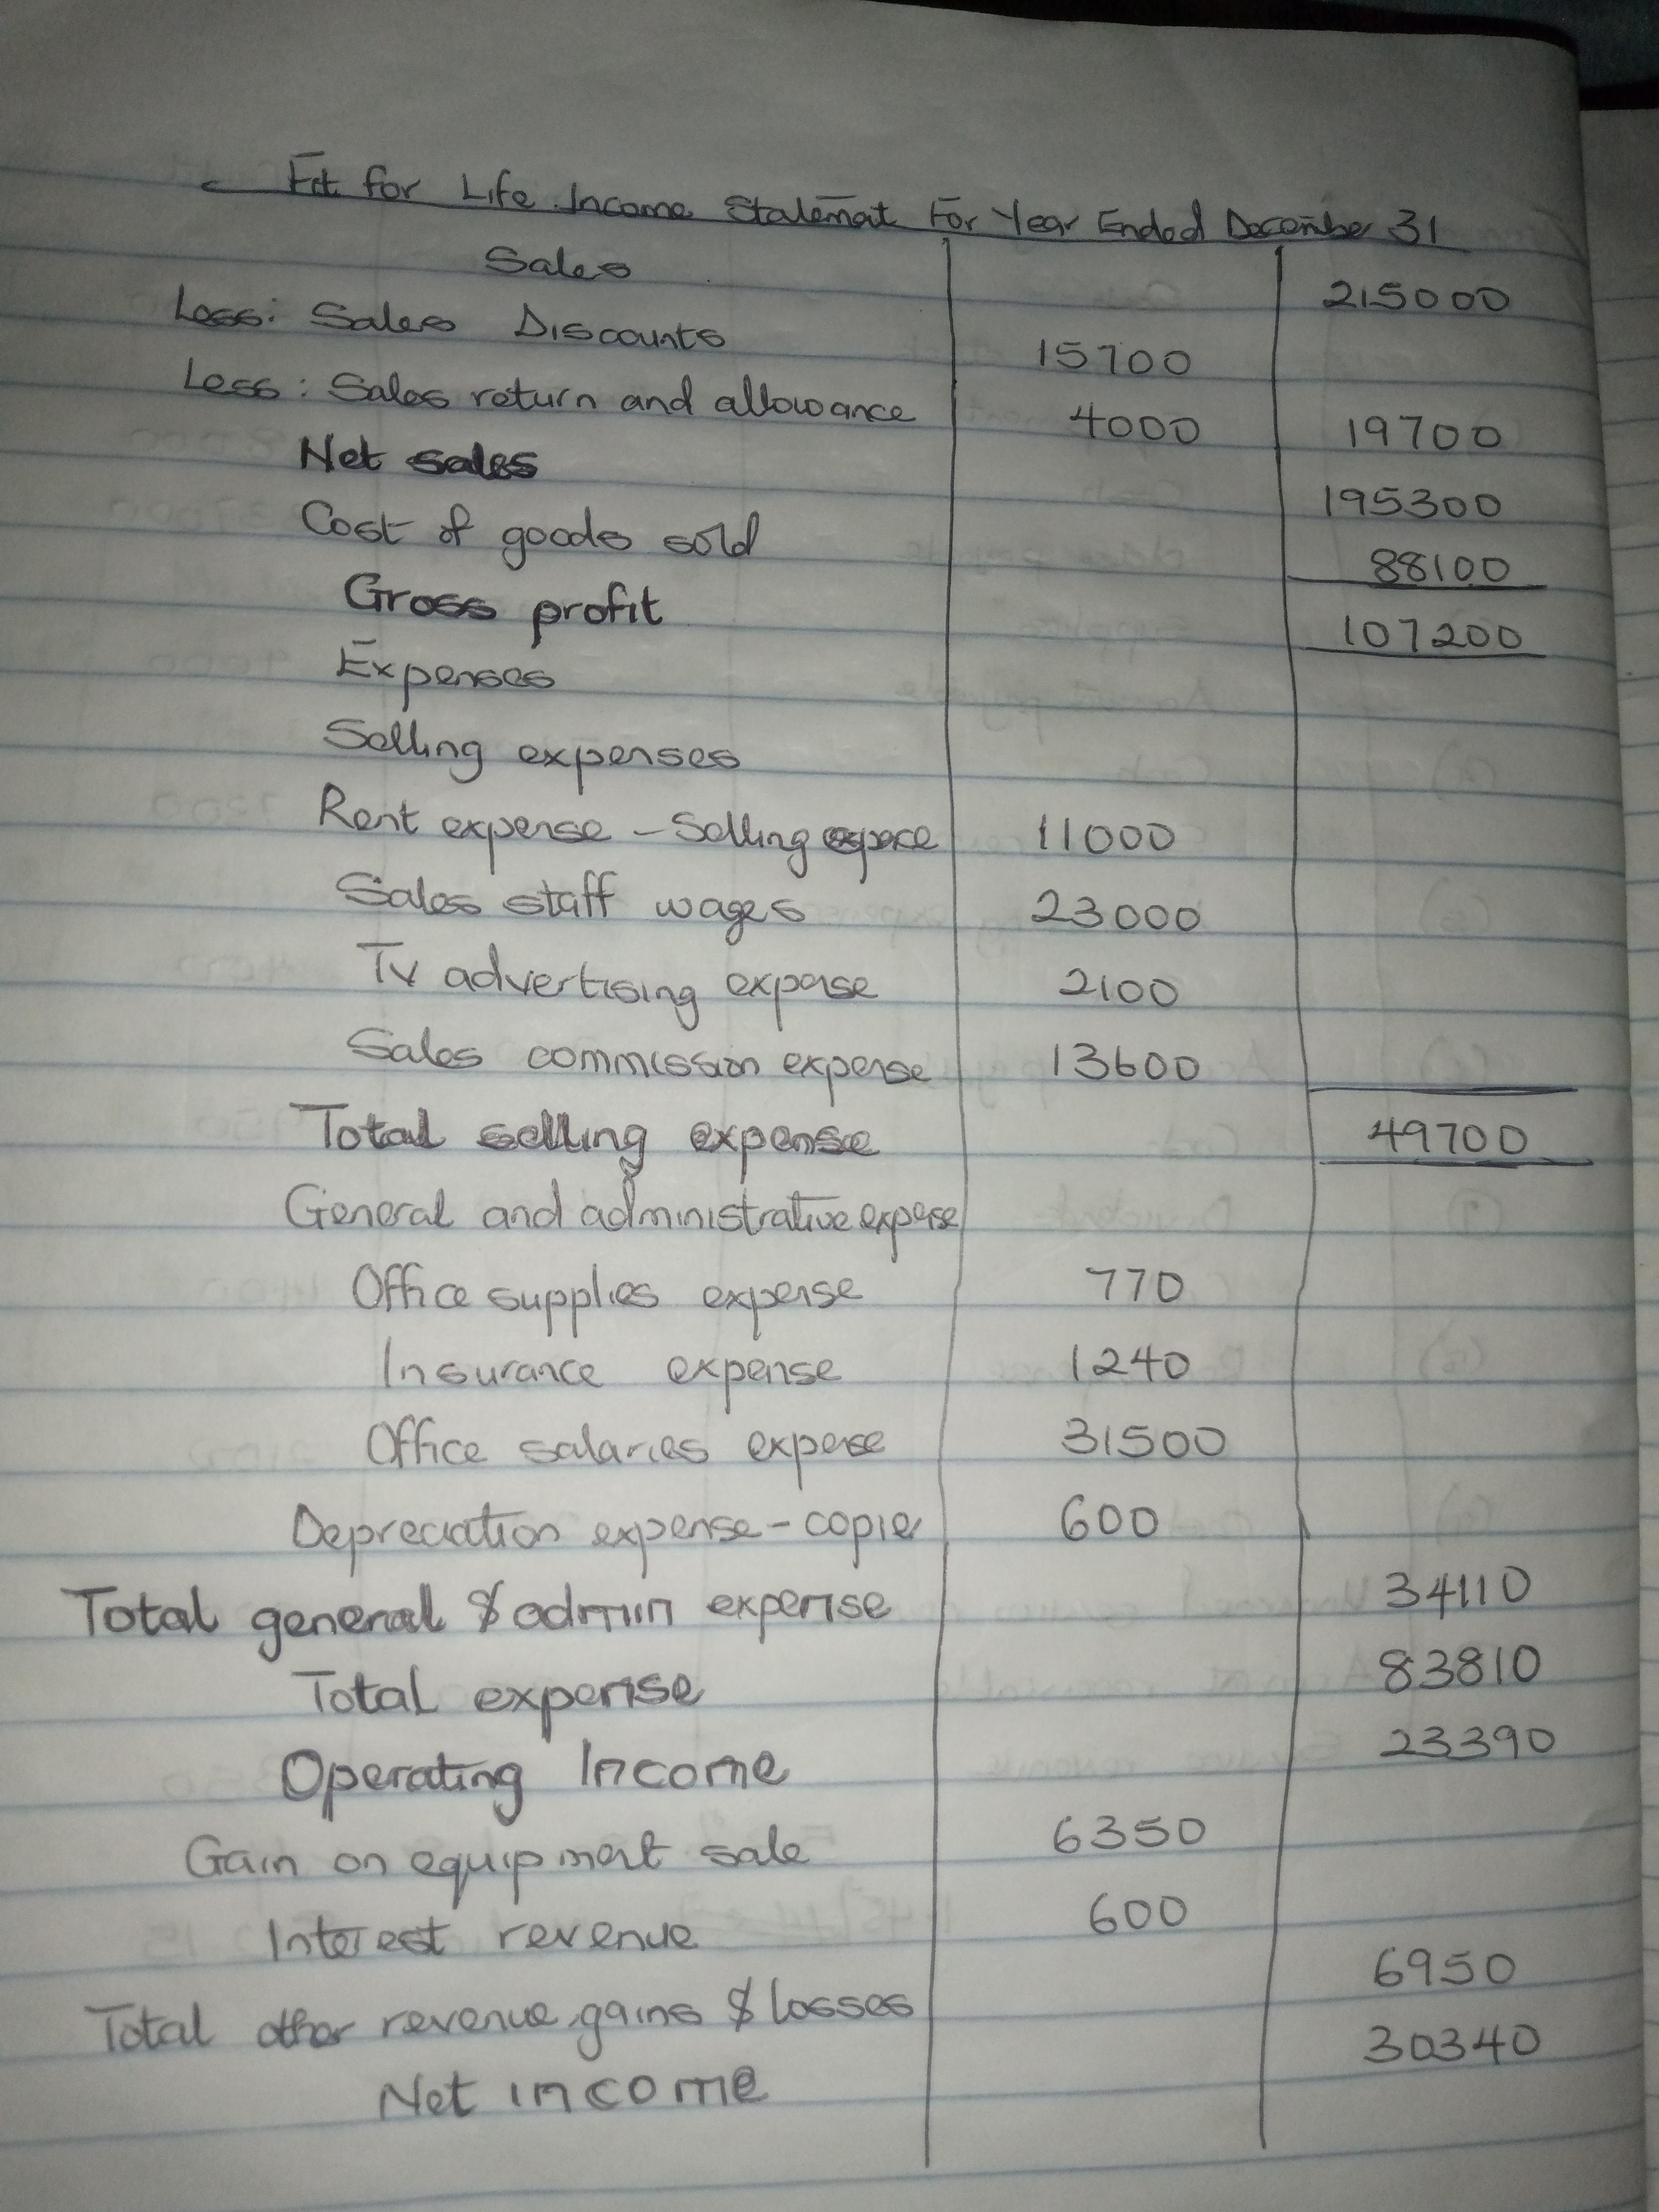 Fit for Life Income Statement For Year Ended December 31
Sales 215000
Less: Sales Discounts 15700
Less: Sales return and allowance 4000 19700
Net sales 195300
Cost of goods sold 88100
Gross profit 107200
Expenses
Selling expenses
Rent expense - Selling space 11000
Sales staff wages 23000
Tv advertising expense 2100
Sales commission expense 13600
Total selling expense 49700
General and administrative expense
Office supplies expense 770
Insurance expense 1240
Office salaries expense 31500
Depreciation expense - copier 600
Total general & admin expense 34110
Total expense 83810
Operating Income 23390
Gain on equipment sale 6350
Interest revenue 600
Total other revenue, gains & losses 6950
Net income 30340